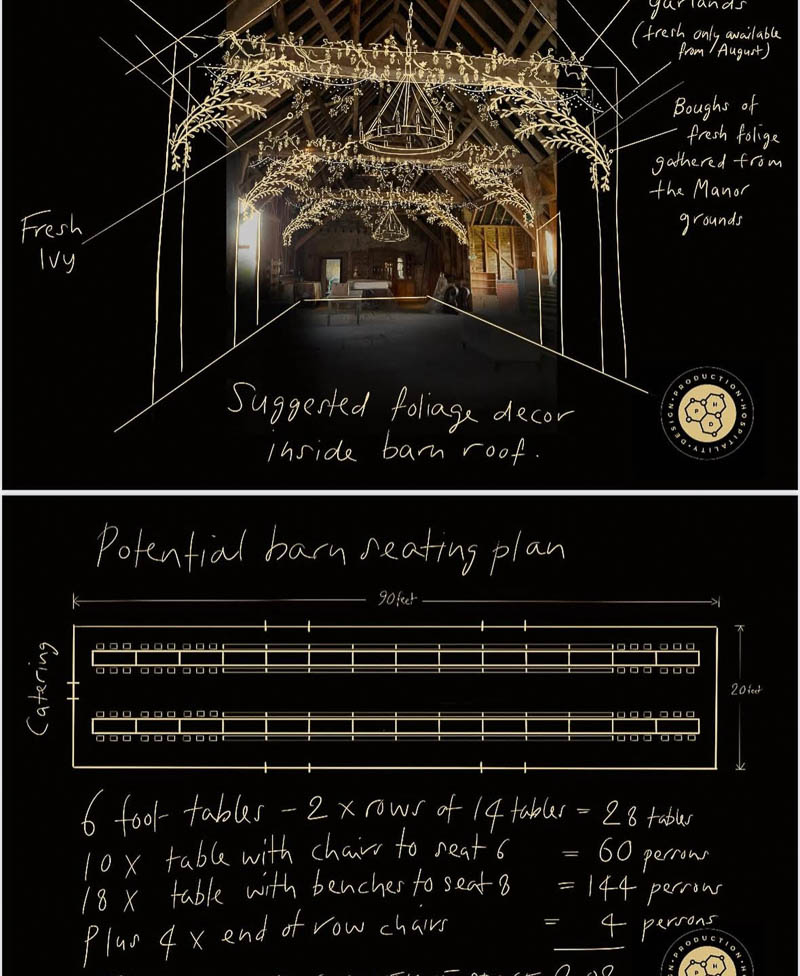 garlands
(fresh only available
from August)
Boughs of
fresh folige
gathered from
the Manor
grounds
Fresh
Ivy
Suggested foliage decor
inside barn roof.
DESIGN • PRODUCTION • HOSPITALITY •
P H
D
Potential barn seating plan
90 feet
Catering
20 feet
6 foot tables - 2 x rows of 14 tables = 28 tables
10 x table with chairs to seat 6 = 60 persons
18 x table with benches to seat 8 = 144 persons
Plus 4 x end of row chairs = 4 persons
208
PRODUCTION • HOSPITALITY
P H